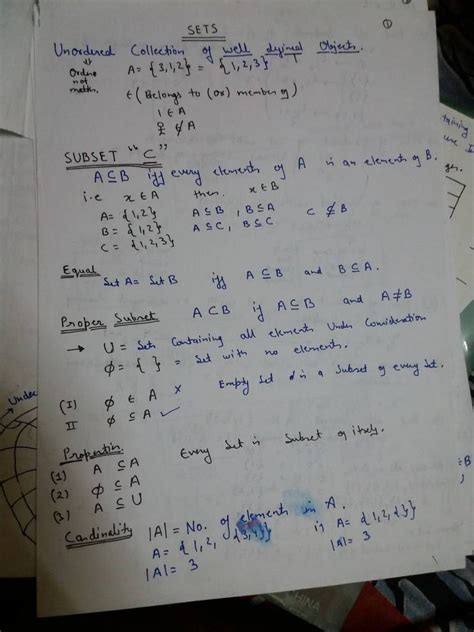 SETS
①
Unordered Collection of well defined Objects.
⇓
Orders not matter.
A = {3,1,2} = {1,2,3}
∈ (Belongs to (or) member of)
1 ∈ A
∉ A
SUBSET "⊂"
A ⊆ B iff every elements of A is an elements of B.
i.e x ∈ A then x ∈ B
A = {1,2} A ⊆ B , B ⊆ A C ⊄ B
B = {1,2} A ⊆ C, B ⊆ C
C = {1,2,3}
Equal
Set A = Set B iff A ⊆ B and B ⊆ A.
Proper Subset A ⊂ B if A ⊆ B and A ≠ B
→ U = Sets Containing all elements Under Consideration
ϕ = { } = Set with no elements.
(I) ϕ ∈ A × Empty Set is a Subset of every Set.
II ϕ ⊆ A ✓
Properties
(1) A ⊆ A Every Set is Subset of itself.
(2) ϕ ⊂ A
(3) A ⊆ U
Cardinality |A| = No. of elements in A.
A = {1,2,{3,4}} if A = {1,2,{}}
|A| = 3 |A| = 3
Under
CHINA